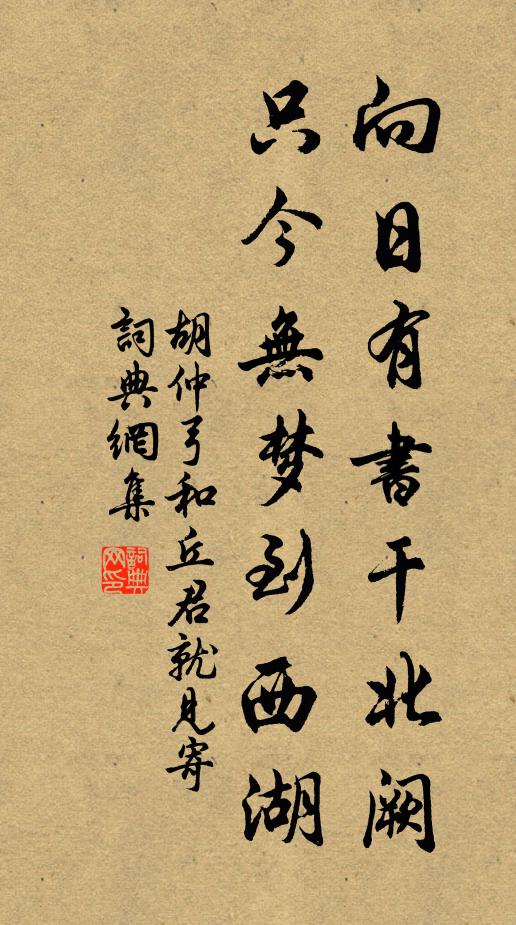 向日有書干北闕
只今無梦到西湖
胡仲弓和丘君就見寄
詞典網集
詞典網印